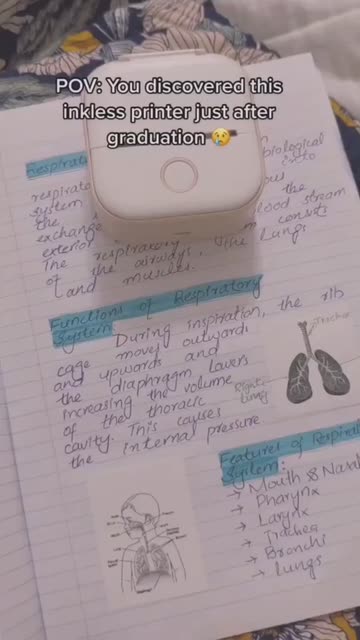 POV: You discovered this
inkless printer just after
graduation 😢
Respirat
biological
respirato
system
the
the
exchange
blood stream
exterior
The respiratory
consists
of the airways, the lungs
and muscles.
Functions of Respiratory
System:
During inspiration, the rib
cage moves outwards
and upwards and
the diaphragm
increasing the volume
of the thoracic
cavity. This causes
the internal pressure
Trachea
Right
lung
Features of Respirat
System:
→ Mouth & Nasal
→ Pharynx
→ Larynx
→ Trachea
→ Bronchi
→ Lungs